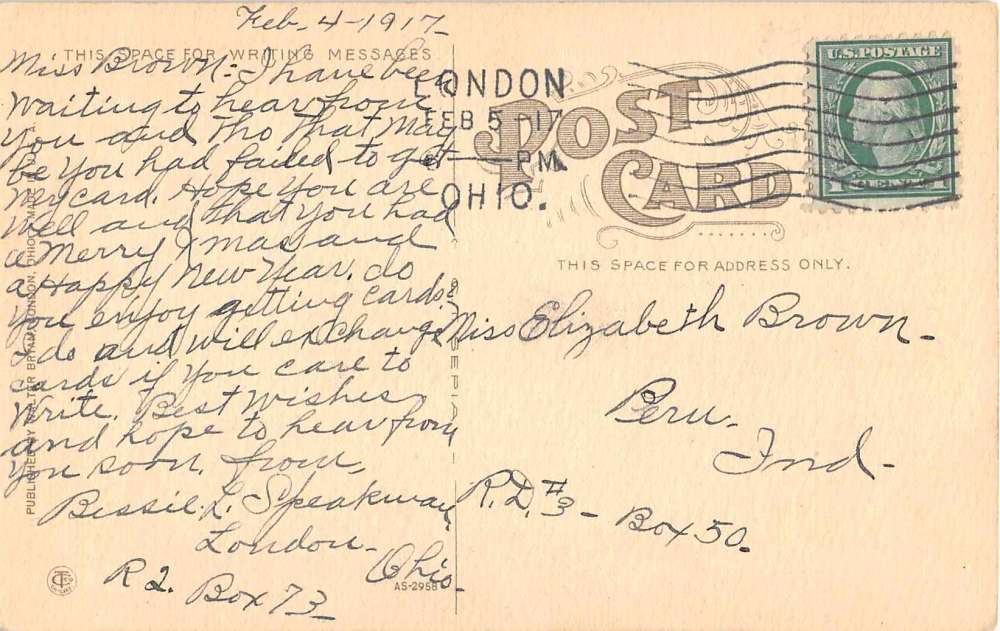 Feb. 4-1917-
THIS SPACE FOR WRITING MESSAGES
Miss Brown:- I have been
waiting to hear from
you and tho that may
be you had failed to get
my card. Hope you are
well and that you had
a Merry Xmas and
a Happy New Year. do
you enjoy getting cards?
I do and will exchange
cards if you care to
write. Best wishes
and hope to hear from
you soon. from,
Bessie L. Speakman
London-
Ohio-
R 2. Box 73
PUBLISHED BY WALTER LONDON, OHIO.
AS-2958
LONDON
FEB 5 17
PM
OHIO.
POST
CARD
U.S. POSTAGE
1 CENT 1
THIS SPACE FOR ADDRESS ONLY.
Miss Elizabeth Brown-
Peru-
Ind-
R.D. #3- Box 50-